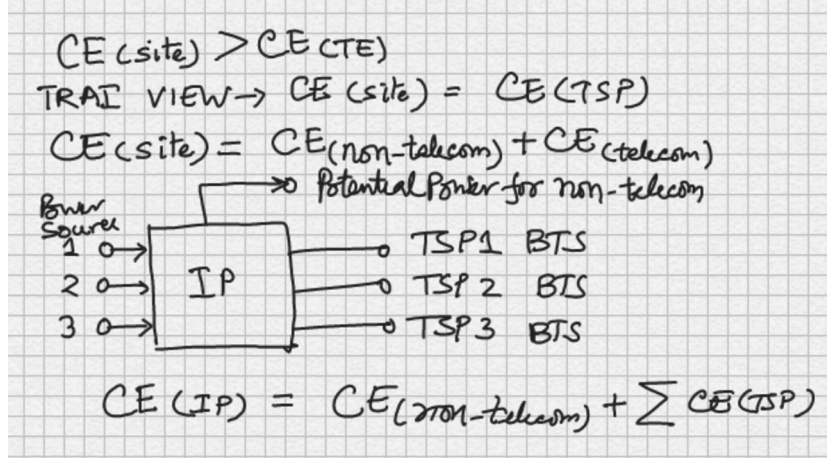 CE (site) > CE (TE)
TRAI VIEW → CE (site) = CE (TSP)
CE (site) = CE (non-telecom) + CE (telecom)
Potential Power for non-telecom
Power
Source
1
2
3
IP
TSP1 BTS
TSP 2 BTS
TSP 3 BTS
CE (IP) = CE (non-telecom) + ∑ CE (TSP)